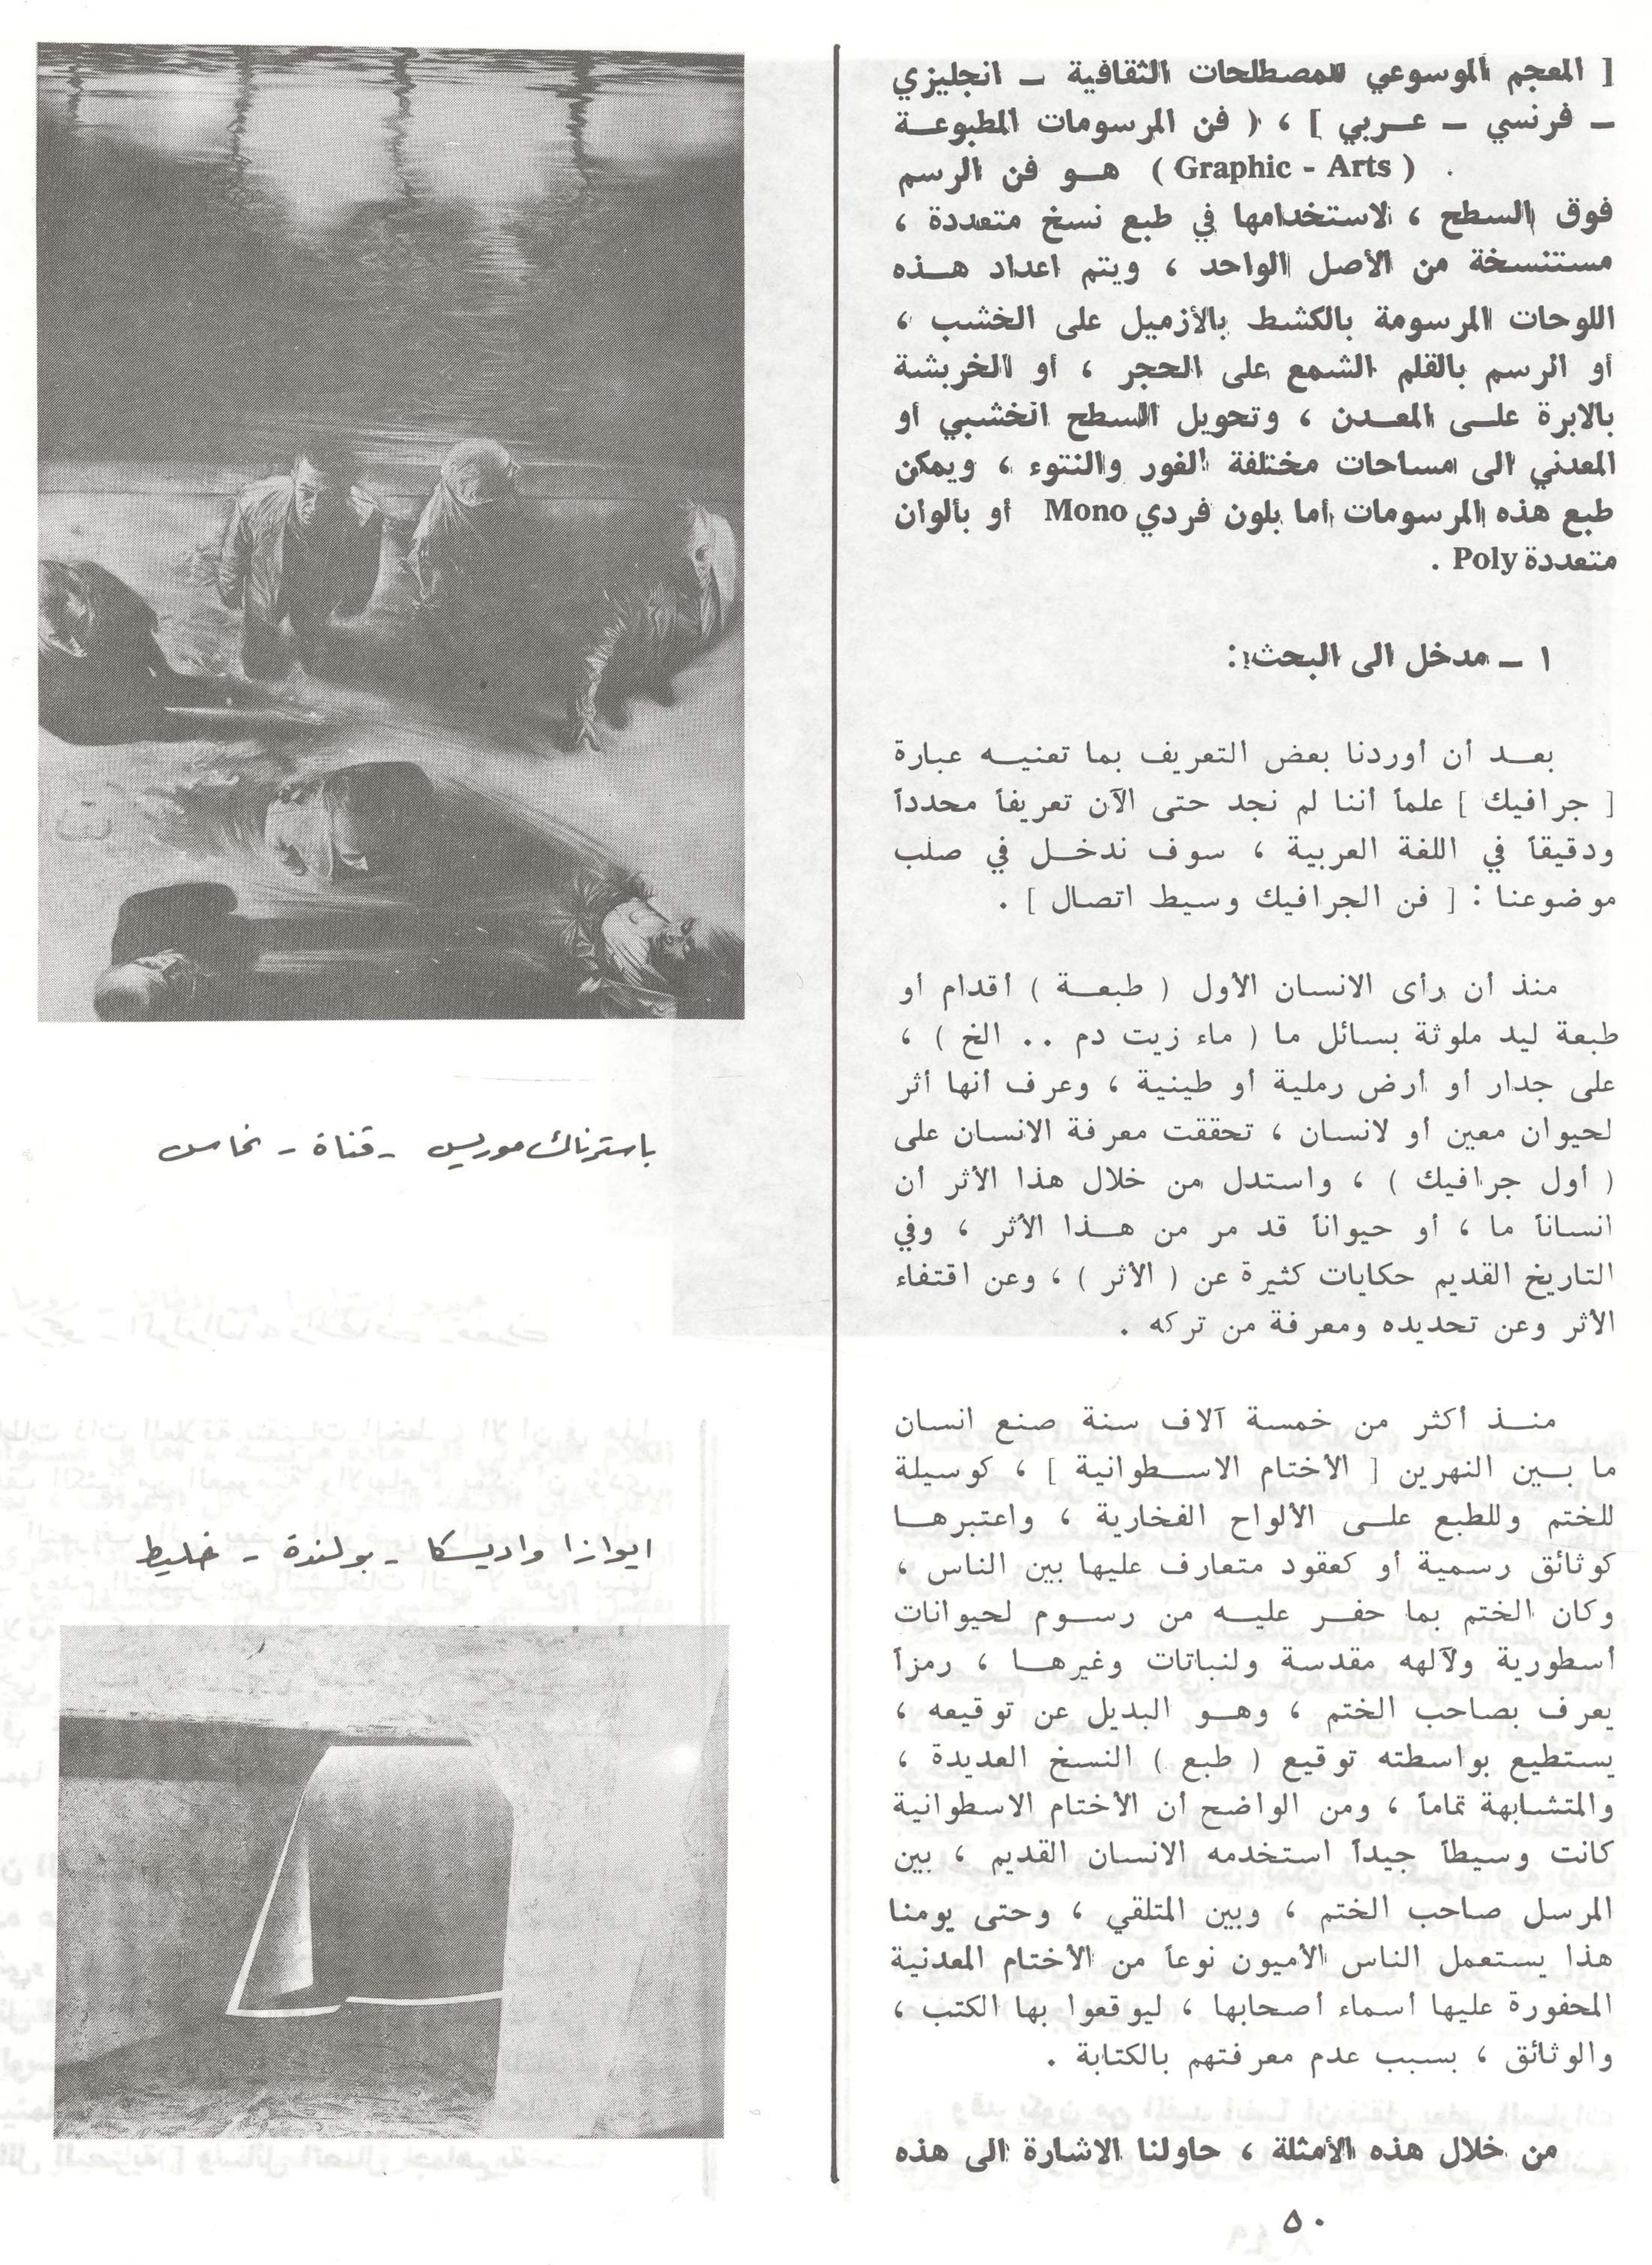 [ المعجم الموسوعي للمصطلحات الثقافية ــ انجليزي
ــ فرنسي ــ عــربي ] ، ( فن المرسومات المطبوعــة
( Graphic - Arts ) هــو فن الرسم .
فوق السطح ، لاستخدامها في طبع نسخ متعددة ،
مستنسخة من الأصل الواحد ، ويتم اعداد هــذه
اللوحات المرسومة بالكشط بالأزميل على الخشب ،
أو الرسم بالقلم الشمع على الحجر ، أو الخربشة
بالابرة علــى المعــدن ، وتحويل السطح الخشبي أو
المعدني الى مساحات مختلفة الغور والنتوء ، ويمكن
طبع هذه المرسومات أما بلون فردي Mono أو بألوان
متعددة Poly .
١ ــ مدخل الى البحث :
بعــد أن أوردنا بعض التعريف بما تعنيــه عبارة
[ جرافيك ] علماً أننا لم نجد حتى الآن تعريفاً محدداً
ودقيقاً في اللغة العربية ، سوف ندخــل في صلب
موضوعنا : [ فن الجرافيك وسيط اتصال ] .
منذ أن رأى الانسان الأول ( طبعــة ) أقدام أو
طبعة ليد ملوثة بسائل ما ( ماء زيت دم .. الخ ) ،
على جدار أو أرض رملية أو طينية ، وعرف أنها أثر
لحيوان معين أو لانسان ، تحققت معرفة الانسان على
( أول جرافيك ) ، واستدل من خلال هذا الأثر أن
انساناً ما ، أو حيواناً قد مر من هــذا الأثر ، وفي
التاريخ القديم حكايات كثيرة عن ( الأثر ) ، وعن اقتفاء
الأثر وعن تحديده ومعرفة من تركه .
منــذ أكثر من خمسة آلاف سنة صنع انسان
ما بــين النهرين [ الأختام الاســطوانية ] ، كوسيلة
للختم وللطبع علــى الألواح الفخارية ، واعتبرهــا
كوثائق رسمية أو كعقود متعارف عليها بين الناس ،
وكان الختم بما حفــر عليــه من رســوم لحيوانات
أسطورية ولآلهه مقدسة ولنباتات وغيرهــا ، رمزاً
يعرف بصاحب الختم ، وهــو البديل عن توقيعه ،
يستطيع بواسطته توقيع ( طبع ) النسخ العديدة ،
والمتشابهة تماماً ، ومن الواضح أن الأختام الاسطوانية
كانت وسيطاً جيداً استخدمه الانسان القديم ، بين
المرسل صاحب الختم ، وبين المتلقي ، وحتى يومنا
هذا يستعمل الناس الأميون نوعاً من الأختام المعدنية
المحفورة عليها أسماء أصحابها ، ليوقعوا بها الكتب ،
والوثائق ، بسبب عدم معرفتهم بالكتابة .
من خلال هذه الأمثلة ، حاولنا الاشارة الى هذه
باسترناك موريس - قناة - نحاس
ايوازا واديسكا - بولندة - خليط
٥٠